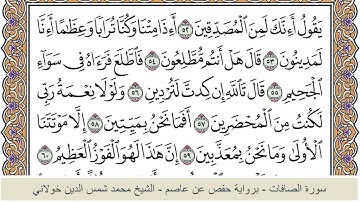 يَقُولُ أَءِنَّكَ لَمِنَ ٱلْمُصَدِّقِينَ ٥٢ أَءِذَا مِتْنَا وَكُنَّا تُرَابًا وَعِظَٰمًا أَءِنَّا
لَمَدِينُونَ ٥٣ قَالَ هَلْ أَنتُم مُّطَّلِعُونَ ٥٤ فَٱطَّلَعَ فَرَءَاهُ فِى سَوَآءِ
ٱلْجَحِيمِ ٥٥ قَالَ تَٱللَّهِ إِن كِدتَّ لَتُرْدِينِ ٥٦ وَلَوْلَا نِعْمَةُ رَبِّى
لَكُنتُ مِنَ ٱلْمُحْضَرِينَ ٥٧ أَفَمَا نَحْنُ بِمَيِّتِينَ ٥٨ إِلَّا مَوْتَتَنَا
ٱلْأُولَىٰ وَمَا نَحْنُ بِمُعَذَّبِينَ ٥٩ إِنَّ هَٰذَا لَهُوَ ٱلْفَوْزُ ٱلْعَظِيمُ ٦٠
سورة الصافات - برواية حفص عن عاصم - الشيخ محمد شمس الدين خولاني